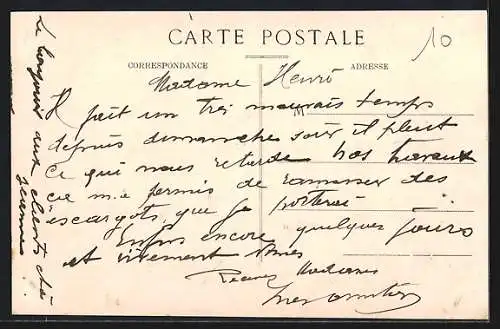 CARTE POSTALE
10
CORRESPONDANCE
ADRESSE
Madame Henrõ
M
Il fait un très mauvais temps
depuis dimanche soir il pleut
Ce qui nous retarde nos travaux
ce m'a permis de ramasser des
escargots, que je porterai
Enfin encore quelques jours
et vivement
Recevez Madame
Le bonjour aux clients